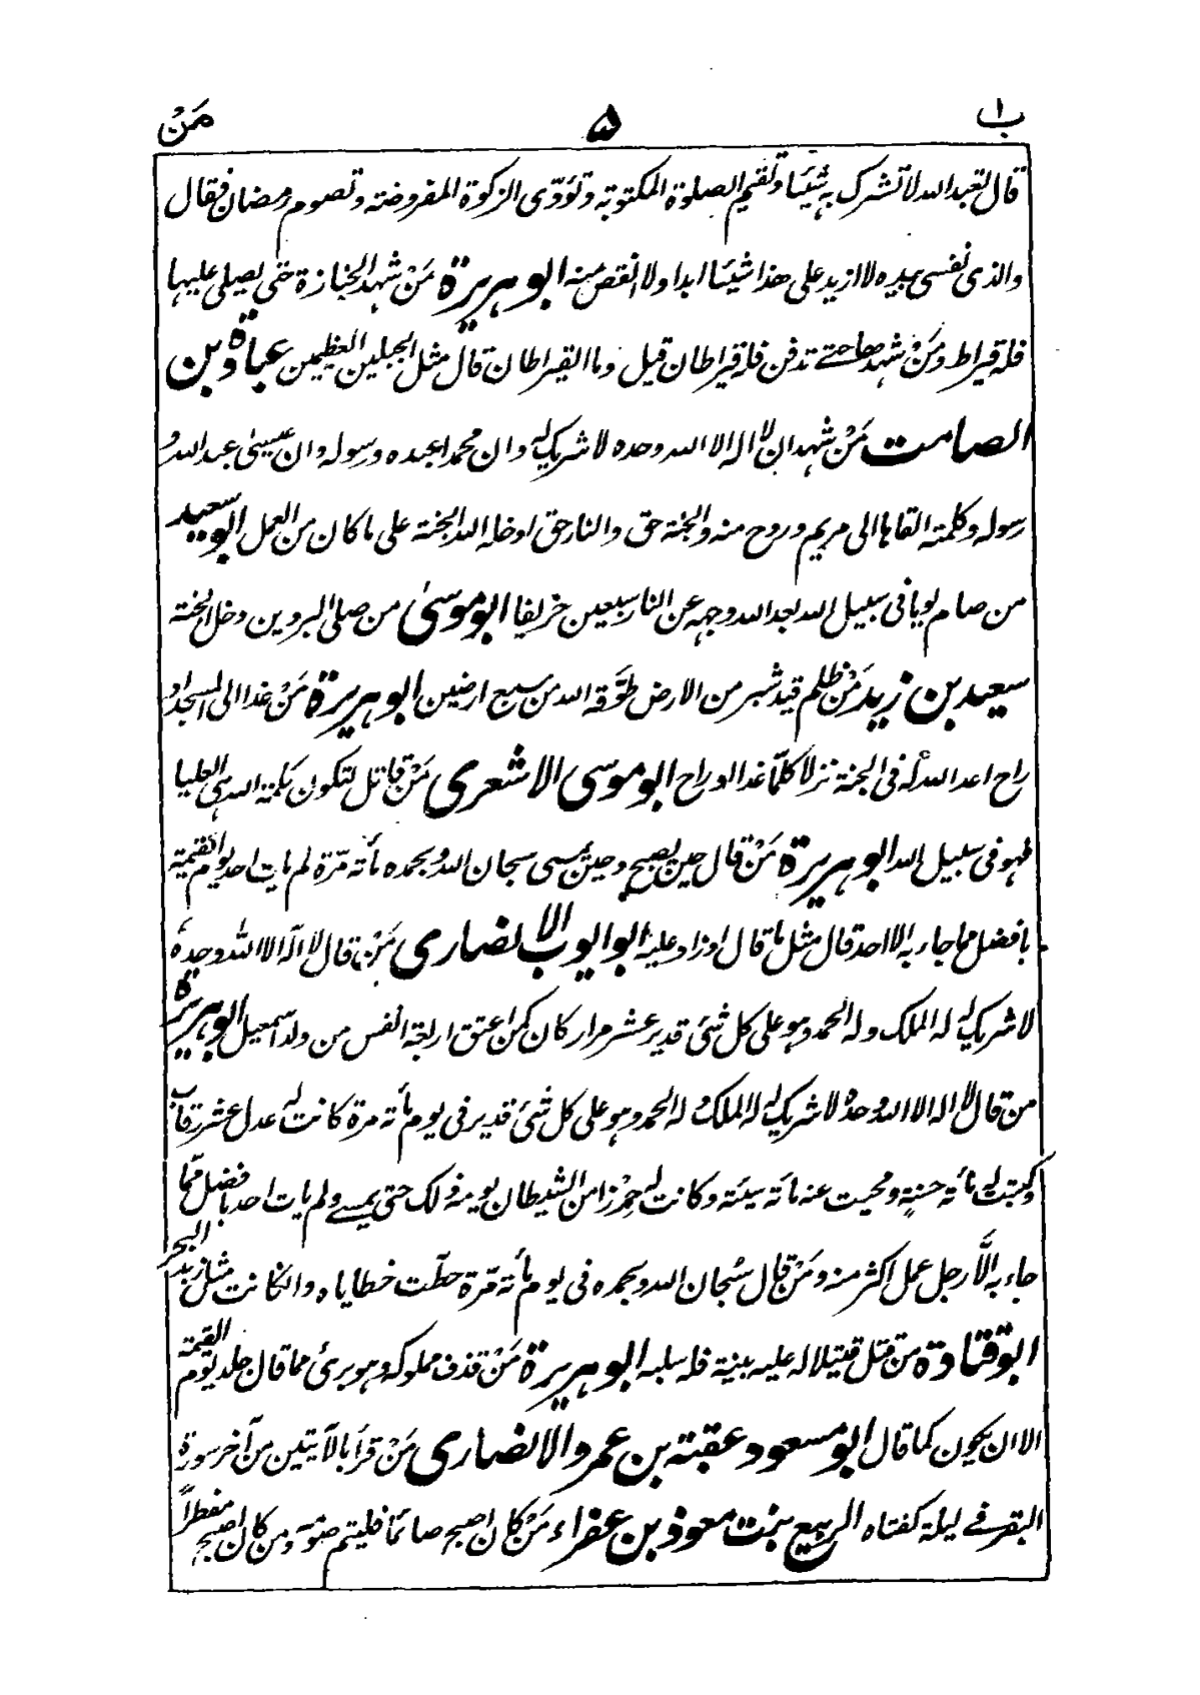 ب ١ ۵ مَنْ
قال تعبد الله لا تشرك به شيئا وتقيم الصلوة المكتوبة وتؤدّى الزكوة المفروضة وتصوم رمضان فقال
والذى نفسى بيده لا ازيد على هذا شيئا ابدا ولا انقص منه ابو هريرة مَنْ شهد الجنازة حتى يصلى عليها
فله قيراط ومَنْ شهدها حتے تدفن فله قيراطان قيل وما القيراطان قال مثل الجبلين العظيمين عبادة بن
الصامت مَنْ شهد ان لا اله الا الله وحده لا شريك له وان محمدا عبده ورسوله وان عيسىٰ عبد الله و
رسوله وكلمته القاها الى مريم وروح منه والجنة حق والنار حق ادخله الله الجنة على ما كان من العمل ابو سعيد
من صام يوما فى سبيل الله بعد الله وجهه عن النار سبعين خريفا ابو موسىٰ من صلى البردين دخل الجنة
سعيد بن زيد مَنْ ظلم قيد شبر من الارض طوّقه الله من سبع ارضين ابو هريرة مَنْ غدا الى المسجد او
راح اعد الله له فى الجنة نزلا كلّما غدا او راح ابو موسى الاشعرى مَنْ قاتل لتكون كلمة الله هى العليا
فهو فى سبيل الله ابو هريرة مَنْ قال حين يصبح وحين يمسى سبحان الله وبحمده مأئة مرّة لم يات احد يوم القيمة
بافضل مما جاء به الا احد قال مثل ما قال او زاد عليه ابو ايوب الانصارى مَنْ قال لا الٰه الا الله وحده
لا شريك له له الملك وله الحمد وهو على كل شئ قدير عشر مرار كان كمن اعتق اربعة انفس من ولد اسمعيل ابو هريرة
من قال لا اله الا الله وحده لا شريك له له الملك وله الحمد وهو على كل شئ قدير فى يوم مأئة مرة كانت له عدل عشر رقاب
وكتبت له مأئة حسنةٍ ومحيت عنه مائة سيئة وكانت له حِرْزا من الشيطان يومه ذلك حتى يمسے ولم يات احد بافضل ممّا
جاء به الَّا رجل عمل اكثر منه ومَنْ قال سُبحان الله وبحمده فى يوم مأئة مرّة حطّت خطاياه وان كانت مثل زبد البحر
ابو قتادة من قتل قتيلا له عليه بينة فله سلبه ابو هريرة مَنْ قذف مملوكه وهو برئ مما قال جلد يوم القيمة
الا ان يكون كما قال ابو مسعود عقبة بن عمرو الانصارى مَنْ قرأ بالآيتين من آخر سورة
البقرة فے ليلة كفتاه الربيع بنت معوذ بن عفراء مَنْ كان اصبح صائما فليتم صومه ومن كان اصبح مفطراً